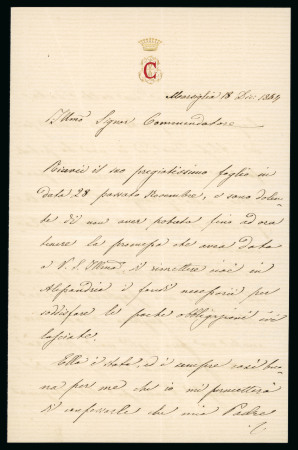 C
Marsiglia 18 Dic. 1864
Illmo Signor Commendatore
Ricevei il suo pregiatissimo foglio in
data 28 passato Novembre, e sono dolen-
te di non aver potuto fino ad ora
tenere la promessa che avea data
a V. S. Illma di rimettere cioè in
Alessandria i fondi necessari per
soddisfare le poche obbligazioni ivi
lasciate.
Ella è stata, ed è sempre così buo-
na per me che io mi permetterò
di confessarle che mio Padre